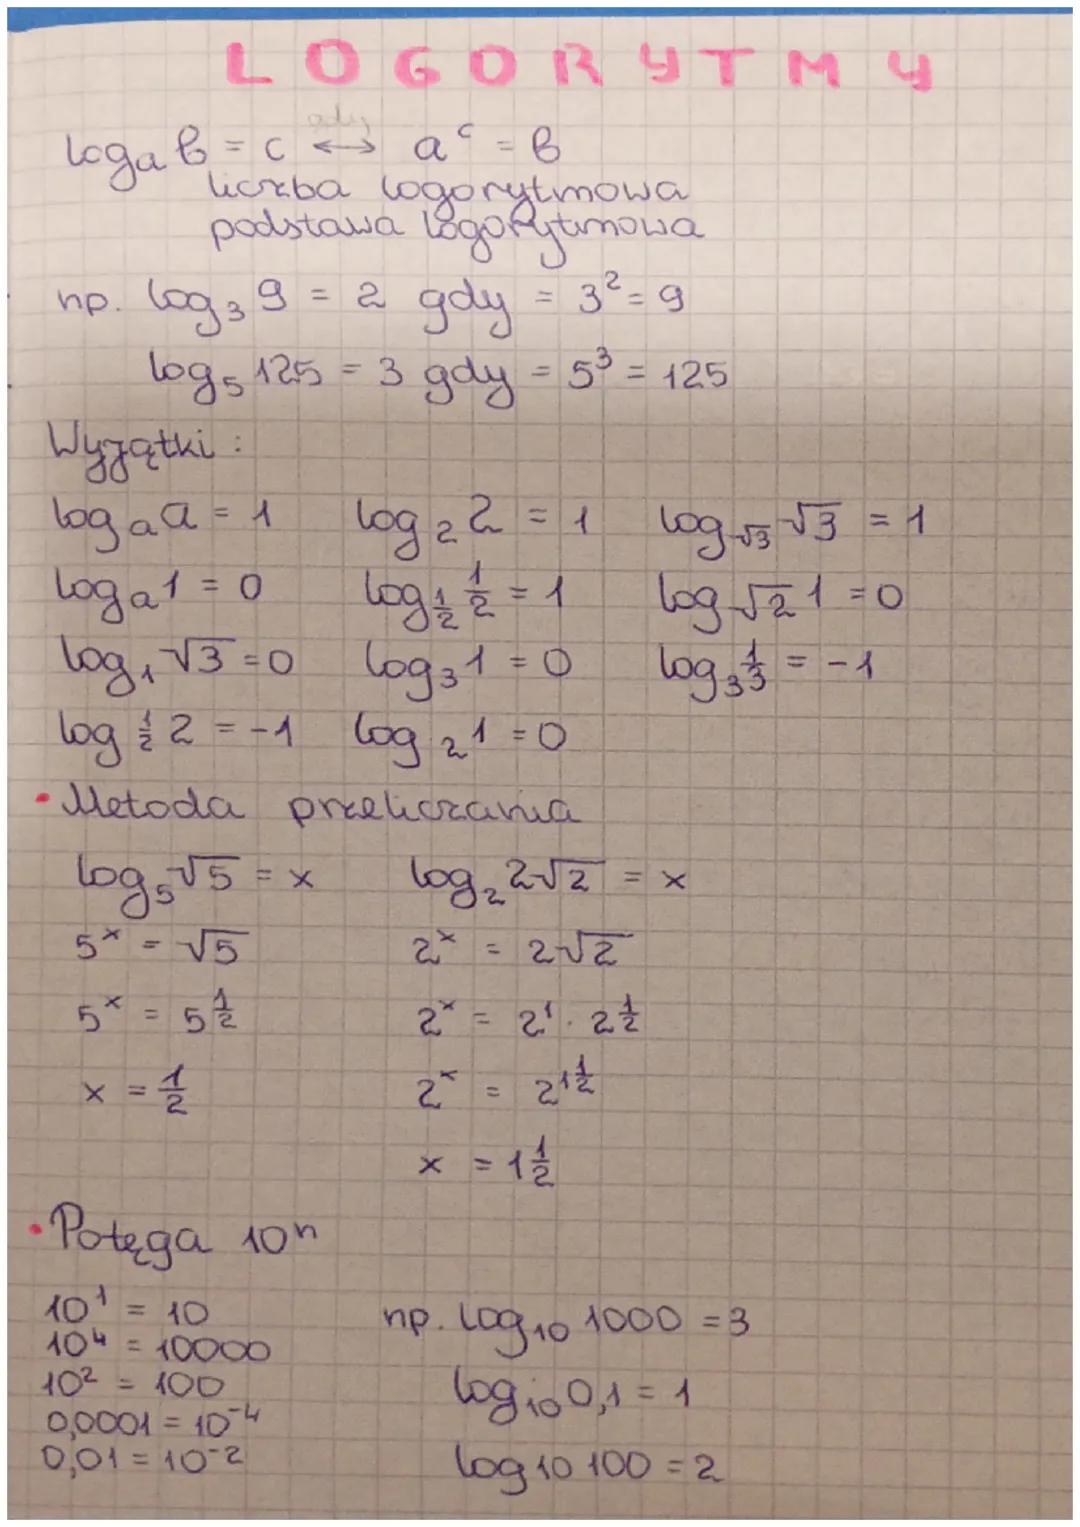 LOGORYTMY
gdy
log_a b = c ↔ a^c = b
liczba logorytmowa
podstawa logorytmowa
np. log_3 9 = 2 gdy = 3^2 = 9
log_5 125 = 3 gdy = 5^3 = 125
Wyjątki :
log_a a = 1 log_2 2 = 1 log_√3 √3 = 1
log_a 1 = 0 log_1/2 1/2 = 1 log_√2 1 = 0
log_1 √3 = 0 log_3 1 = 0 log_3 1/3 = -1
log_1/2 2 = -1 log_2 1 = 0
• Metoda przeliczania
log_5 √5 = x log_2 2√2 = x
5^x = √5 2^x = 2√2
5^x = 5^1/2 2^x = 2^1 · 2^1/2
x = 1/2 2^x = 2^1 1/2
x = 1 1/2
• Potęga 10^n
10^1 = 10 np. log_10 1000 = 3
10^4 = 10000
10^2 = 100 log_10 0,1 = 1
0,0001 = 10^-4
0,01 = 10^-2 log 10 100 = 2